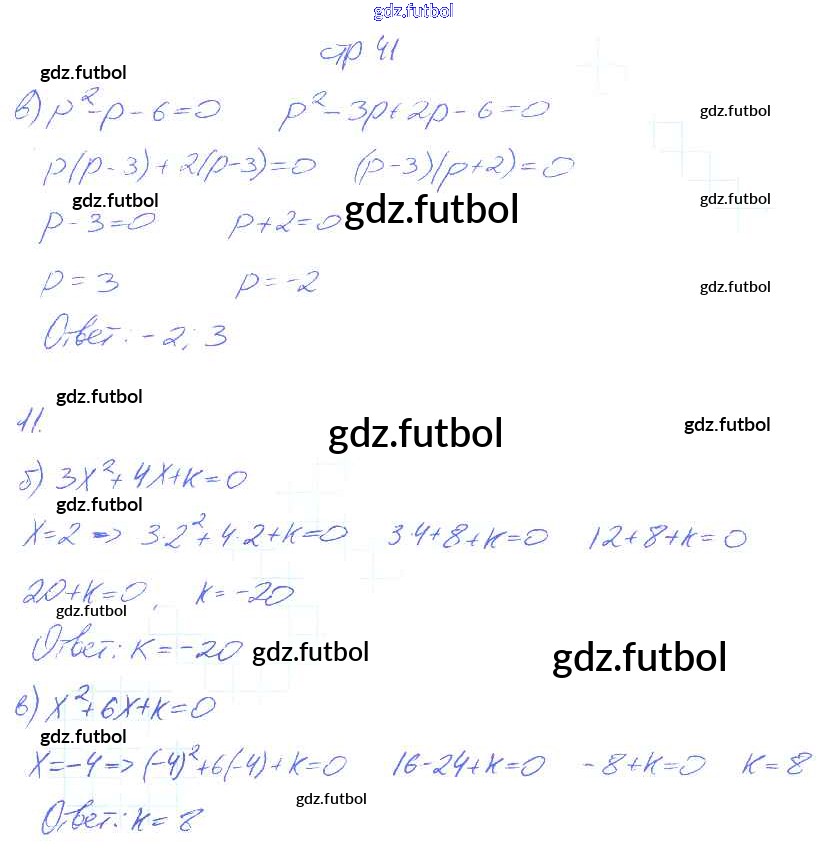 gdz.futbol
стр 41
gdz.futbol
в) p² - p - 6 = 0 p² - 3p + 2p - 6 = 0 gdz.futbol
p(p - 3) + 2(p - 3) = 0 (p - 3)(p + 2) = 0
gdz.futbol gdz.futbol gdz.futbol
p - 3 = 0 p + 2 = 0
p = 3 p = -2 gdz.futbol
Ответ: -2; 3
gdz.futbol
11. gdz.futbol gdz.futbol
б) 3x² + 4x + k = 0
gdz.futbol
x = 2 => 3·2² + 4·2 + k = 0 3·4 + 8 + k = 0 12 + 8 + k = 0
20 + k = 0, k = -20
gdz.futbol
Ответ: k = -20 gdz.futbol gdz.futbol
в) x² + 6x + k = 0
gdz.futbol
x = -4 => (-4)² + 6(-4) + k = 0 16 - 24 + k = 0 -8 + k = 0 k = 8
gdz.futbol
Ответ: k = 8